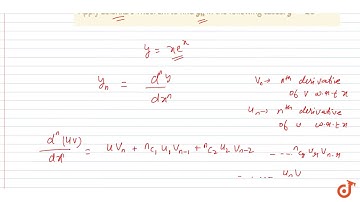 y = xeˣ
yₙ = dⁿy / dxⁿ
Vₙ → nᵗʰ derivative
of v w.r.t x
uₙ → nᵗʰ derivative
of u w.r.t x
dⁿ(uv) / dxⁿ = uVₙ + ⁿC₁ u₁ Vₙ₋₁ + ⁿC₂ u₂ Vₙ₋₂ ---- ⁿCᵣ uᵣ Vₙ₋ᵣ
---- uₙV